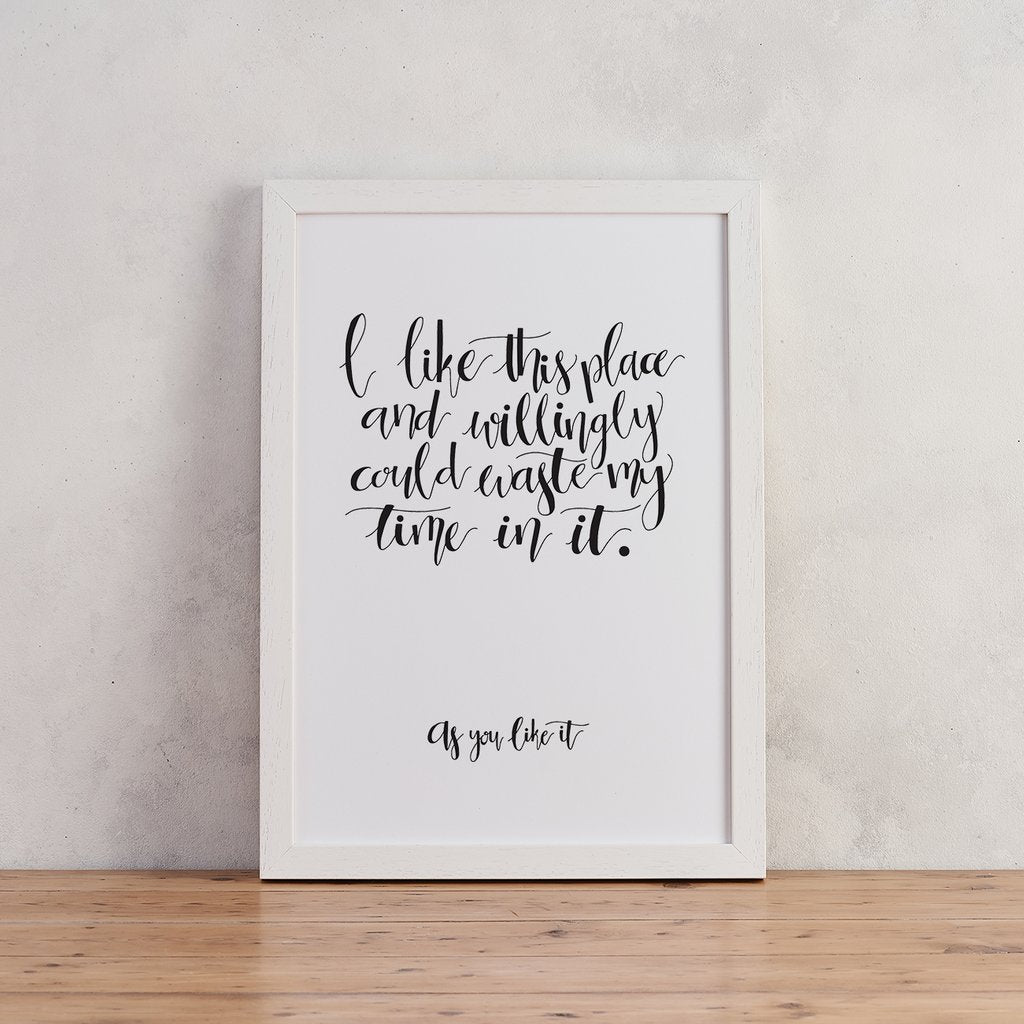 I like this place
and willingly
could waste my
time in it.
As you like it